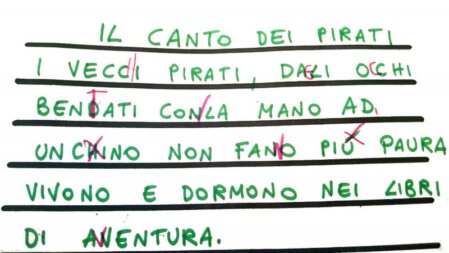 IL CANTO DEI PIRATI
I VECCHI PIRATI, DAGLI OCCHI
BENDATI CON LA MANO AD
UNCINO NON FANNO PIÙ PAURA
VIVONO E DORMONO NEI LIBRI
DI AVVENTURA.